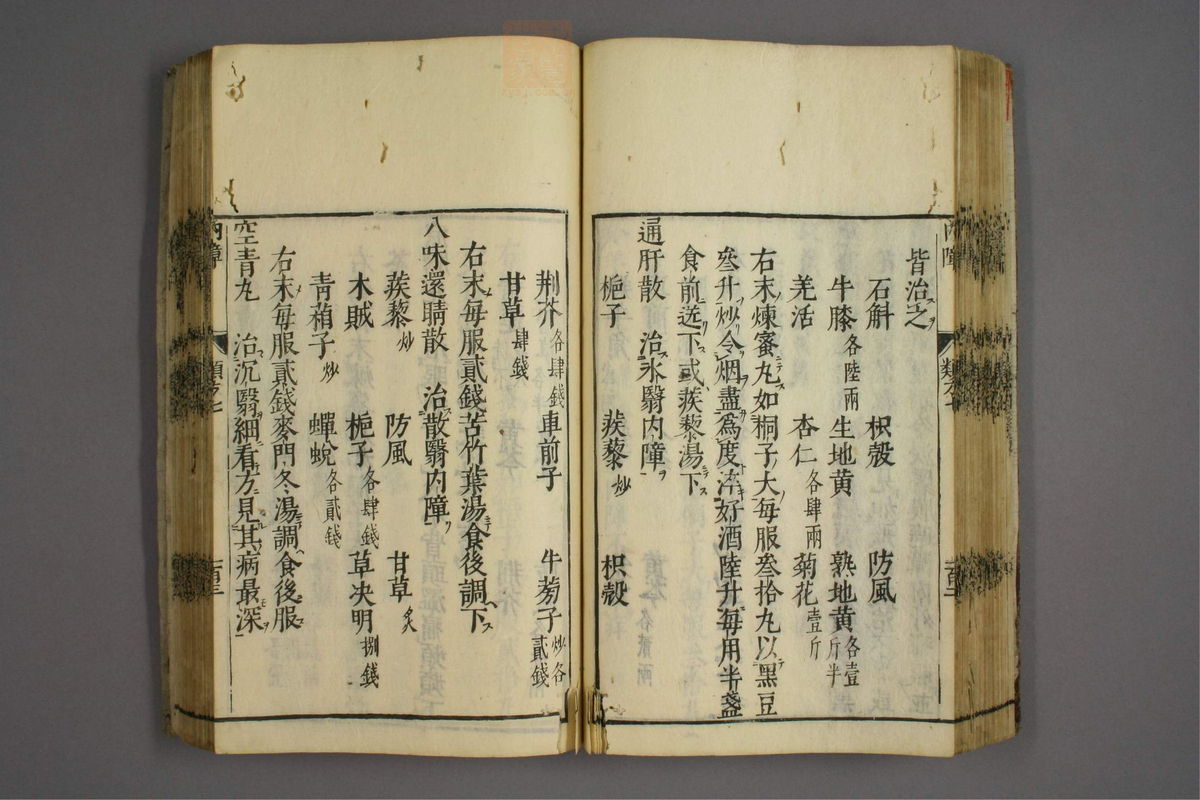 皆治之
石斛 枳殼 防風
牛膝各陸兩 生地黄 熟地黄各壹斤半
羌活 杏仁各肆兩 菊花壹斤
右末煉蜜丸如桐子大每服叄拾丸以黑豆
叄升炒令烟盡為度淬好酒陸升每用半盞
食前送下或蒺藜湯下
通肝散 治氷翳内障
梔子 蒺藜炒 枳殼
荆芥各肆錢 車前子 牛蒡子炒各貳錢
甘草肆錢
右末每服貳錢苦竹葉湯食後調下
八味還睛散 治散翳内障
蒺藜炒 防風 甘草炙
木賊 梔子各肆錢 草决明捌錢
青葙子炒 蟬蛻各貳錢
右末每服貳錢麥門冬湯調食後服
空青丸 治沉翳細看方見其病最深